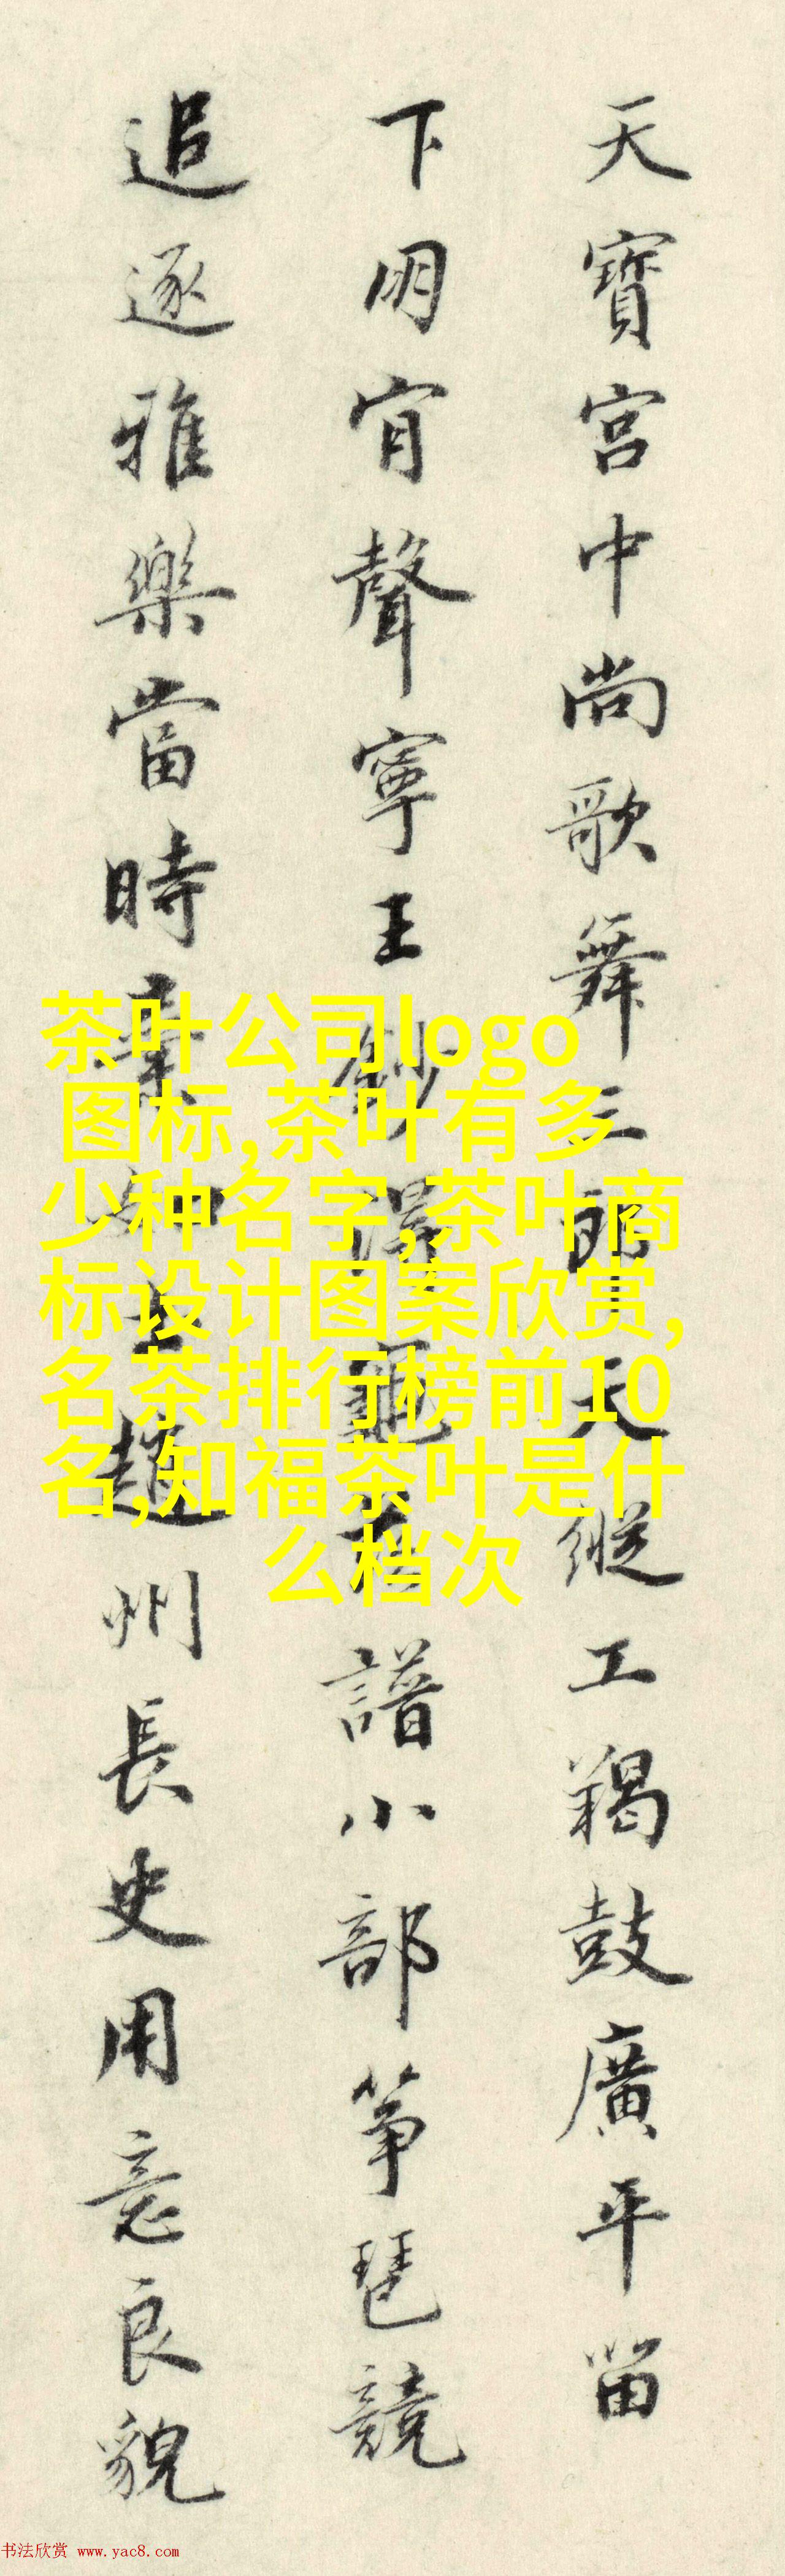 天寶宮中尚歌舞三郎天縱工羯鼓廣平留
下朋肎聲寧王鈔得龜茲譜小部箏琶競
追逐雅樂當時棄如土趙州長史用意良貌
茶叶公司logo
图标,茶叶有多
少种名字,茶叶商
标设计图案欣赏,
名茶排行榜前10
名,知福茶叶是什
么档次
书法欣赏 www.yac8.com